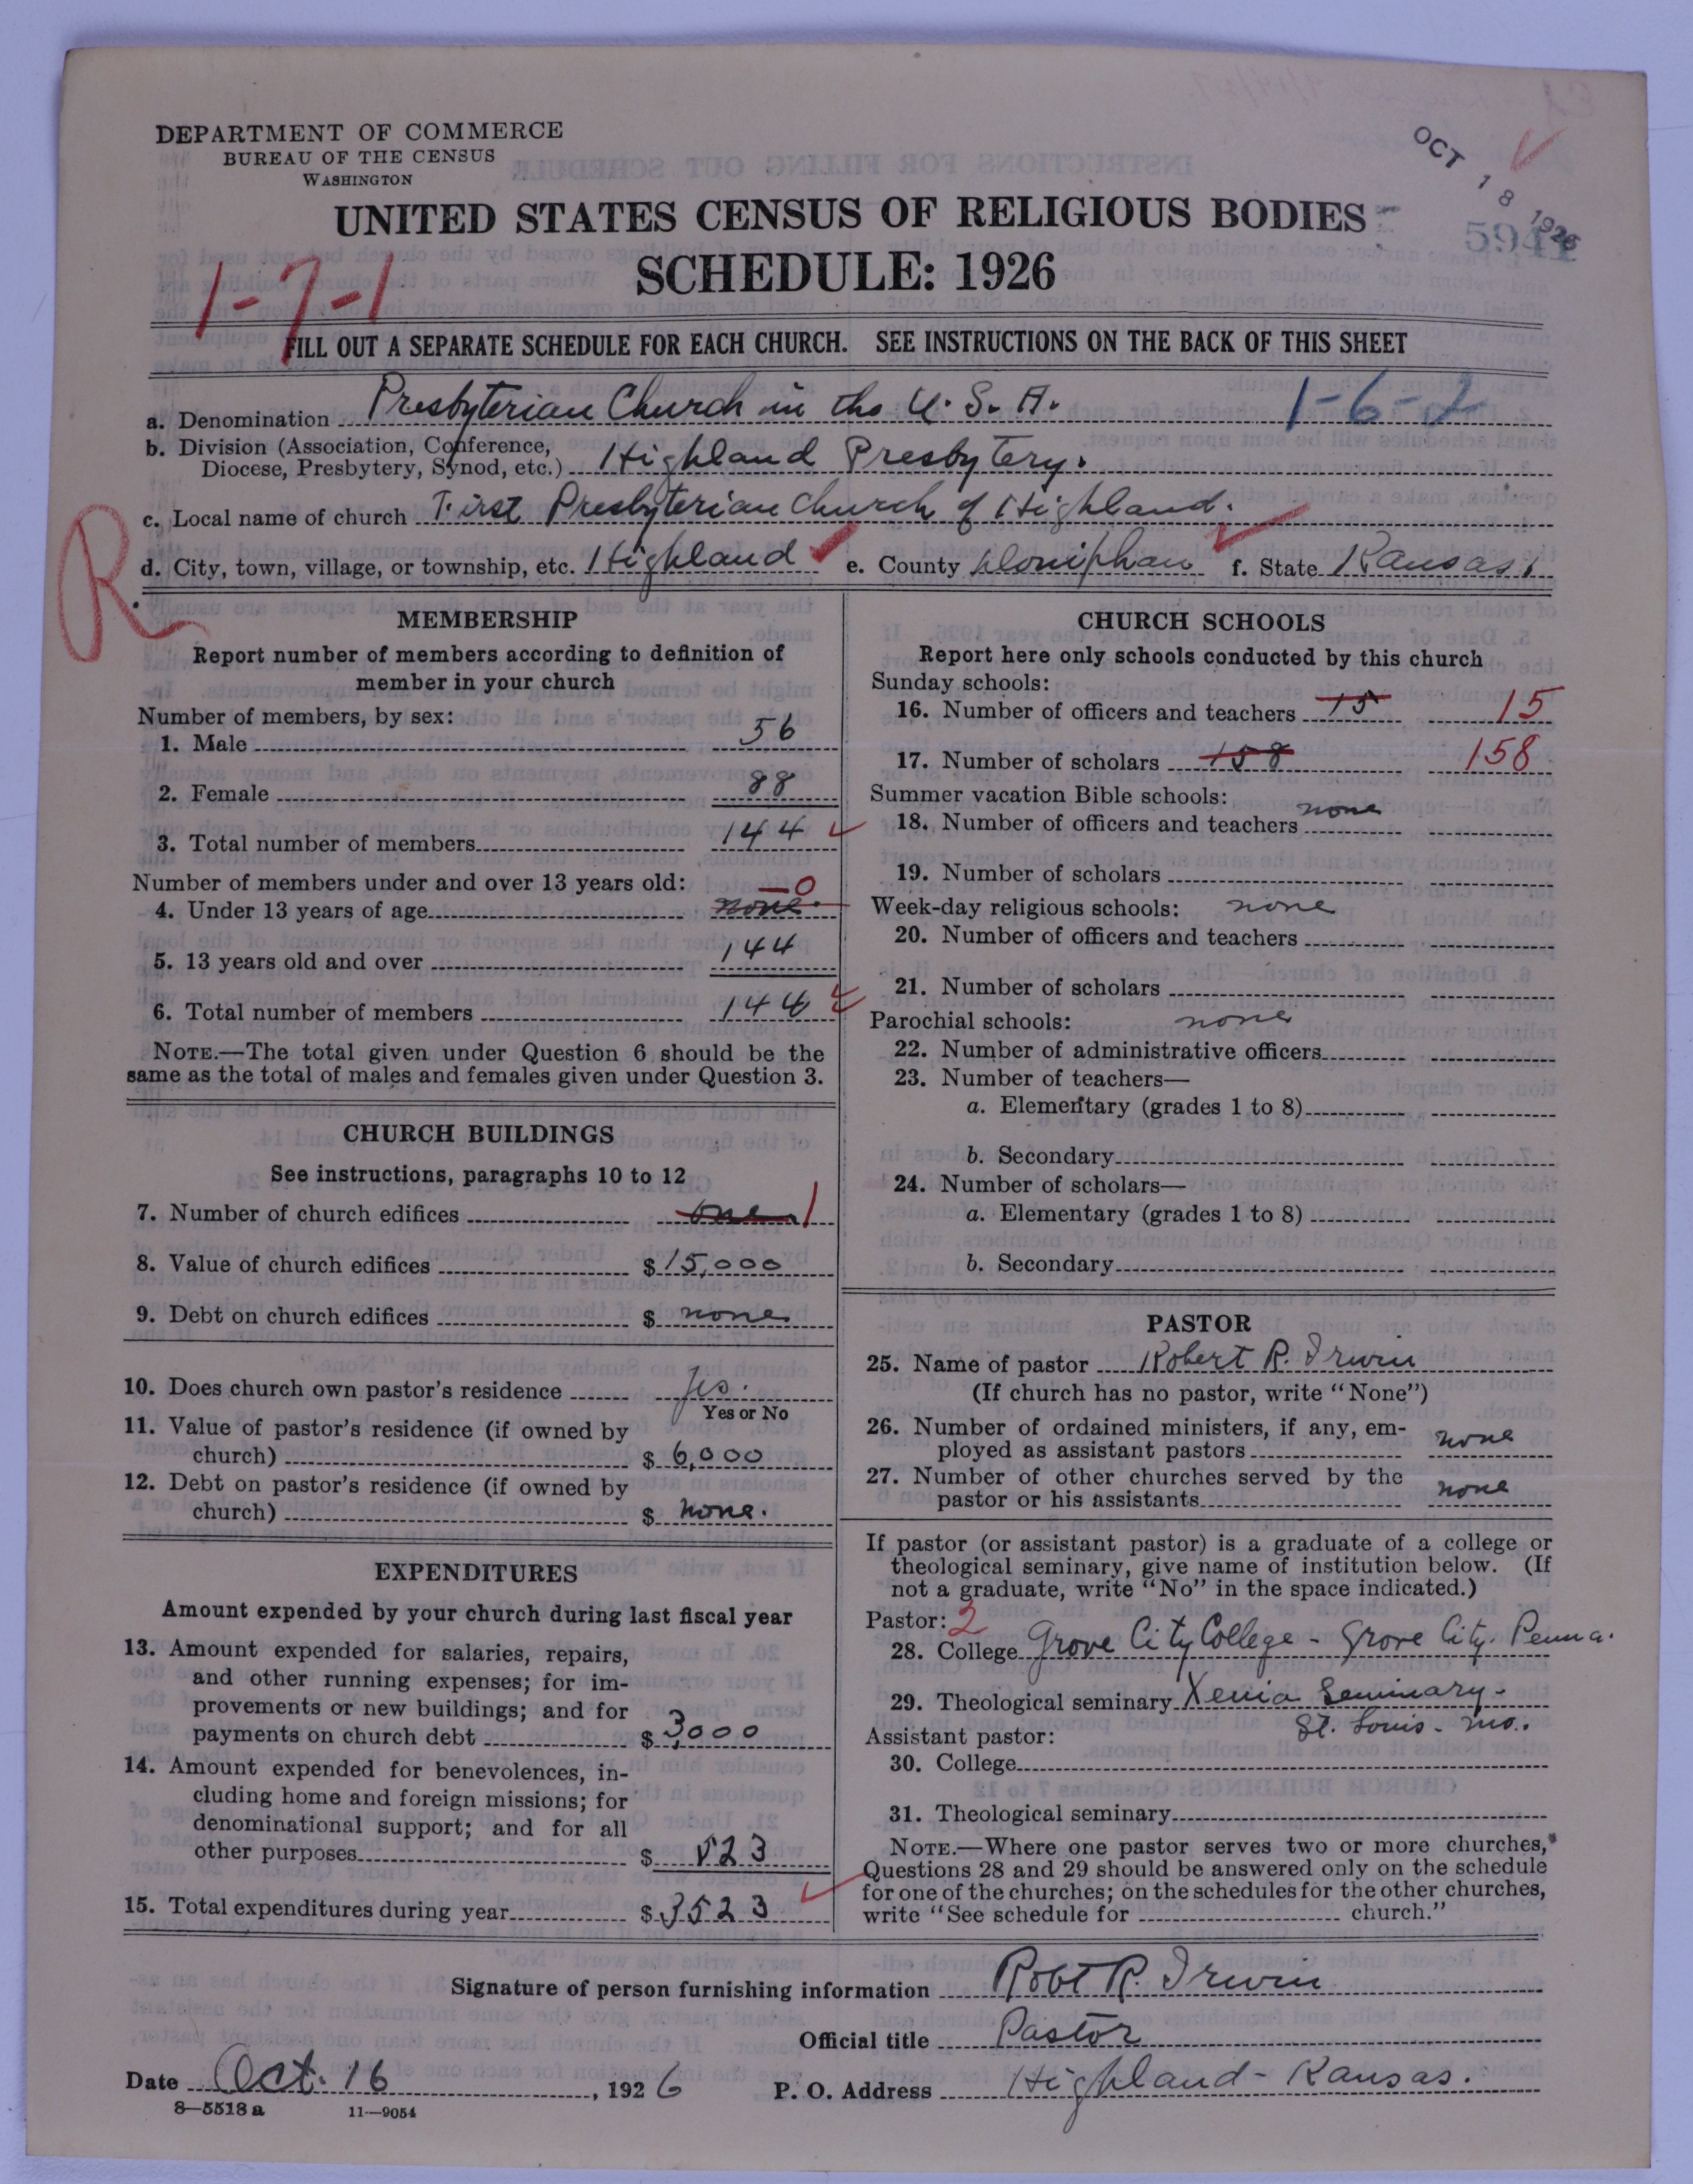 DEPARTMENT OF COMMERCE
BUREAU OF THE CENSUS
WASHINGTON
OCT 18 1926
UNITED STATES CENSUS OF RELIGIOUS BODIES
SCHEDULE: 1926
1-7-1
FILL OUT A SEPARATE SCHEDULE FOR EACH CHURCH. SEE INSTRUCTIONS ON THE BACK OF THIS SHEET
a. Denomination Presbyterian Church in the U.S.A. 1-6-2
b. Division (Association, Conference,
Diocese, Presbytery, Synod, etc.) Highland Presbytery.
c. Local name of church First Presbyterian Church of Highland.
R
d. City, town, village, or township, etc. Highland e. County Doniphan f. State Kansas.
MEMBERSHIP
Report number of members according to definition of
member in your church
Number of members, by sex:
1. Male 56
2. Female 88
3. Total number of members 144
Number of members under and over 13 years old:
4. Under 13 years of age none. 0
5. 13 years old and over 144
6. Total number of members 144
NOTE.—The total given under Question 6 should be the
same as the total of males and females given under Question 3.
CHURCH BUILDINGS
See instructions, paragraphs 10 to 12
7. Number of church edifices one 1
8. Value of church edifices $15,000
9. Debt on church edifices $ none
10. Does church own pastor's residence Yes.
Yes or No
11. Value of pastor's residence (if owned by
church) $ 6,000
12. Debt on pastor's residence (if owned by
church) $ none.
EXPENDITURES
Amount expended by your church during last fiscal year
13. Amount expended for salaries, repairs,
and other running expenses; for im-
provements or new buildings; and for
payments on church debt $ 3,000
14. Amount expended for benevolences, in-
cluding home and foreign missions; for
denominational support; and for all
other purposes $ 523
15. Total expenditures during year $ 3523
CHURCH SCHOOLS
Report here only schools conducted by this church
Sunday schools:
16. Number of officers and teachers 15 15
17. Number of scholars 158 158
Summer vacation Bible schools:
18. Number of officers and teachers none
19. Number of scholars
Week-day religious schools: none
20. Number of officers and teachers
21. Number of scholars
Parochial schools: none
22. Number of administrative officers
23. Number of teachers—
a. Elementary (grades 1 to 8)
b. Secondary
24. Number of scholars—
a. Elementary (grades 1 to 8)
b. Secondary
PASTOR
25. Name of pastor Robert R. Irwin
(If church has no pastor, write "None")
26. Number of ordained ministers, if any, em-
ployed as assistant pastors none
27. Number of other churches served by the
pastor or his assistants none
If pastor (or assistant pastor) is a graduate of a college or
theological seminary, give name of institution below. (If
not a graduate, write "No" in the space indicated.)
Pastor: 2
28. College Grove City College - Grove City. Penna.
29. Theological seminary Xenia Seminary-
St. Louis - Mo.
Assistant pastor:
30. College
31. Theological seminary
NOTE.—Where one pastor serves two or more churches,
Questions 28 and 29 should be answered only on the schedule
for one of the churches; on the schedules for the other churches,
write "See schedule for church."
Signature of person furnishing information Robt R. Irwin
Official title Pastor
Date Oct. 16, 1926 P. O. Address Highland - Kansas.
8—5518 a 11—9054